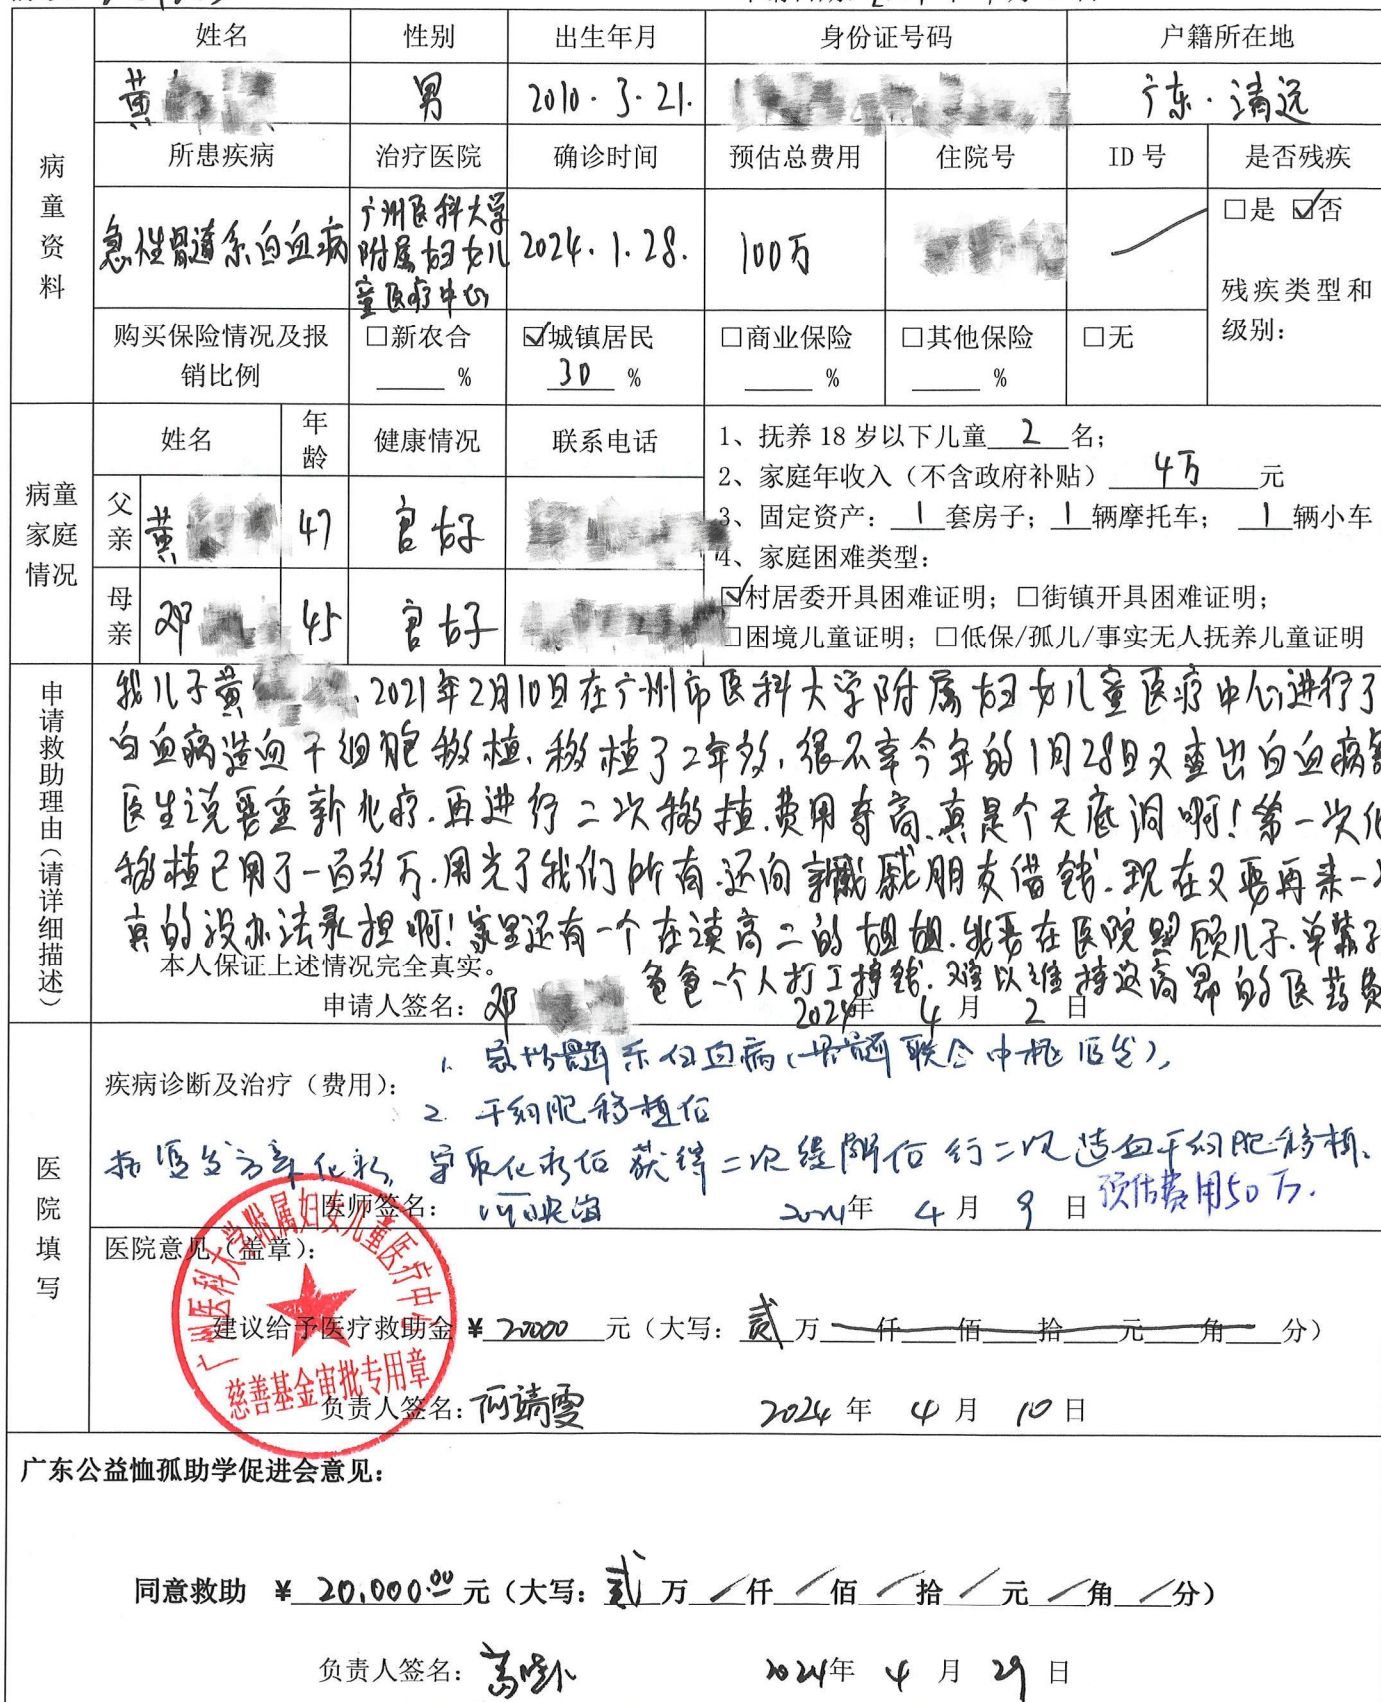 姓名 性别 出生年月 身份证号码 户籍所在地
黄 男 2010.3.21. 广东.清远
病童资料
所患疾病 治疗医院 确诊时间 预估总费用 住院号 ID号 是否残疾
急性髓系白血病 广州医科大学附属妇女儿童医疗中心 2024.1.28. 100万 □是 ☑否
残疾类型和级别：
购买保险情况及报销比例 □新农合 % ☑城镇居民 30 % □商业保险 % □其他保险 % □无
病童家庭情况
姓名 年龄 健康情况 联系电话
父亲 黄 47 良好
母亲 邓 45 良好
1、抚养18岁以下儿童 2 名；
2、家庭年收入（不含政府补贴） 4万 元
3、固定资产： 1 套房子； 1 辆摩托车； 1 辆小车
4、家庭困难类型：
☑村居委开具困难证明；□街镇开具困难证明；
□困境儿童证明；□低保/孤儿/事实无人抚养儿童证明
申请救助理由（请详细描述）
我儿子黄 2021年2月10日在广州市医科大学附属妇女儿童医疗中心进行了
白血病造血干细胞移植，移植了2年多，很不幸今年的1月28日又查出白血病
医生说要重新化疗.再进行二次移植.费用奇高.真是个无底洞啊！第一次化
移植已用了一百多万.用光了我们所有.还向亲戚朋友借钱.现在又要再来一
真的没办法承担啊！家里还有一个在读高二的姐姐.我要在医院照顾儿子.单靠
爸爸一个人打工挣钱.难以维持这高昂的医药费
本人保证上述情况完全真实。
申请人签名：邓 2024年 4 月 2 日
医院填写
疾病诊断及治疗（费用）：
1. 急性髓系白血病（骨髓联合中枢复发），
2. 干细胞移植后
化疗 获得二次缓解后行二次造血干细胞移植.
预估费用50万.
医师签名： 2024年 4 月 9 日
医院意见（盖章）：
广州医科大学附属妇女儿童医疗中心
慈善基金审批专用章
建议给予医疗救助金 ¥ 20000 元（大写： 贰 万 仟 佰 拾 元 角 分）
负责人签名： 2024 年 4 月 10 日
广东公益恤孤助学促进会意见：
同意救助 ¥ 20,000.00 元（大写： 贰 万 / 仟 / 佰 / 拾 / 元 / 角 / 分）
负责人签名： 2024年 4 月 29 日